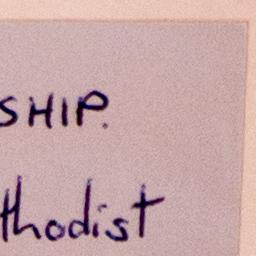 SHIP.
thodist